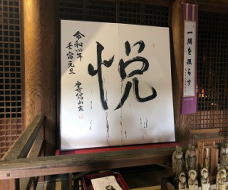 悦
令和四年
壬寅元旦
一隅を照らす